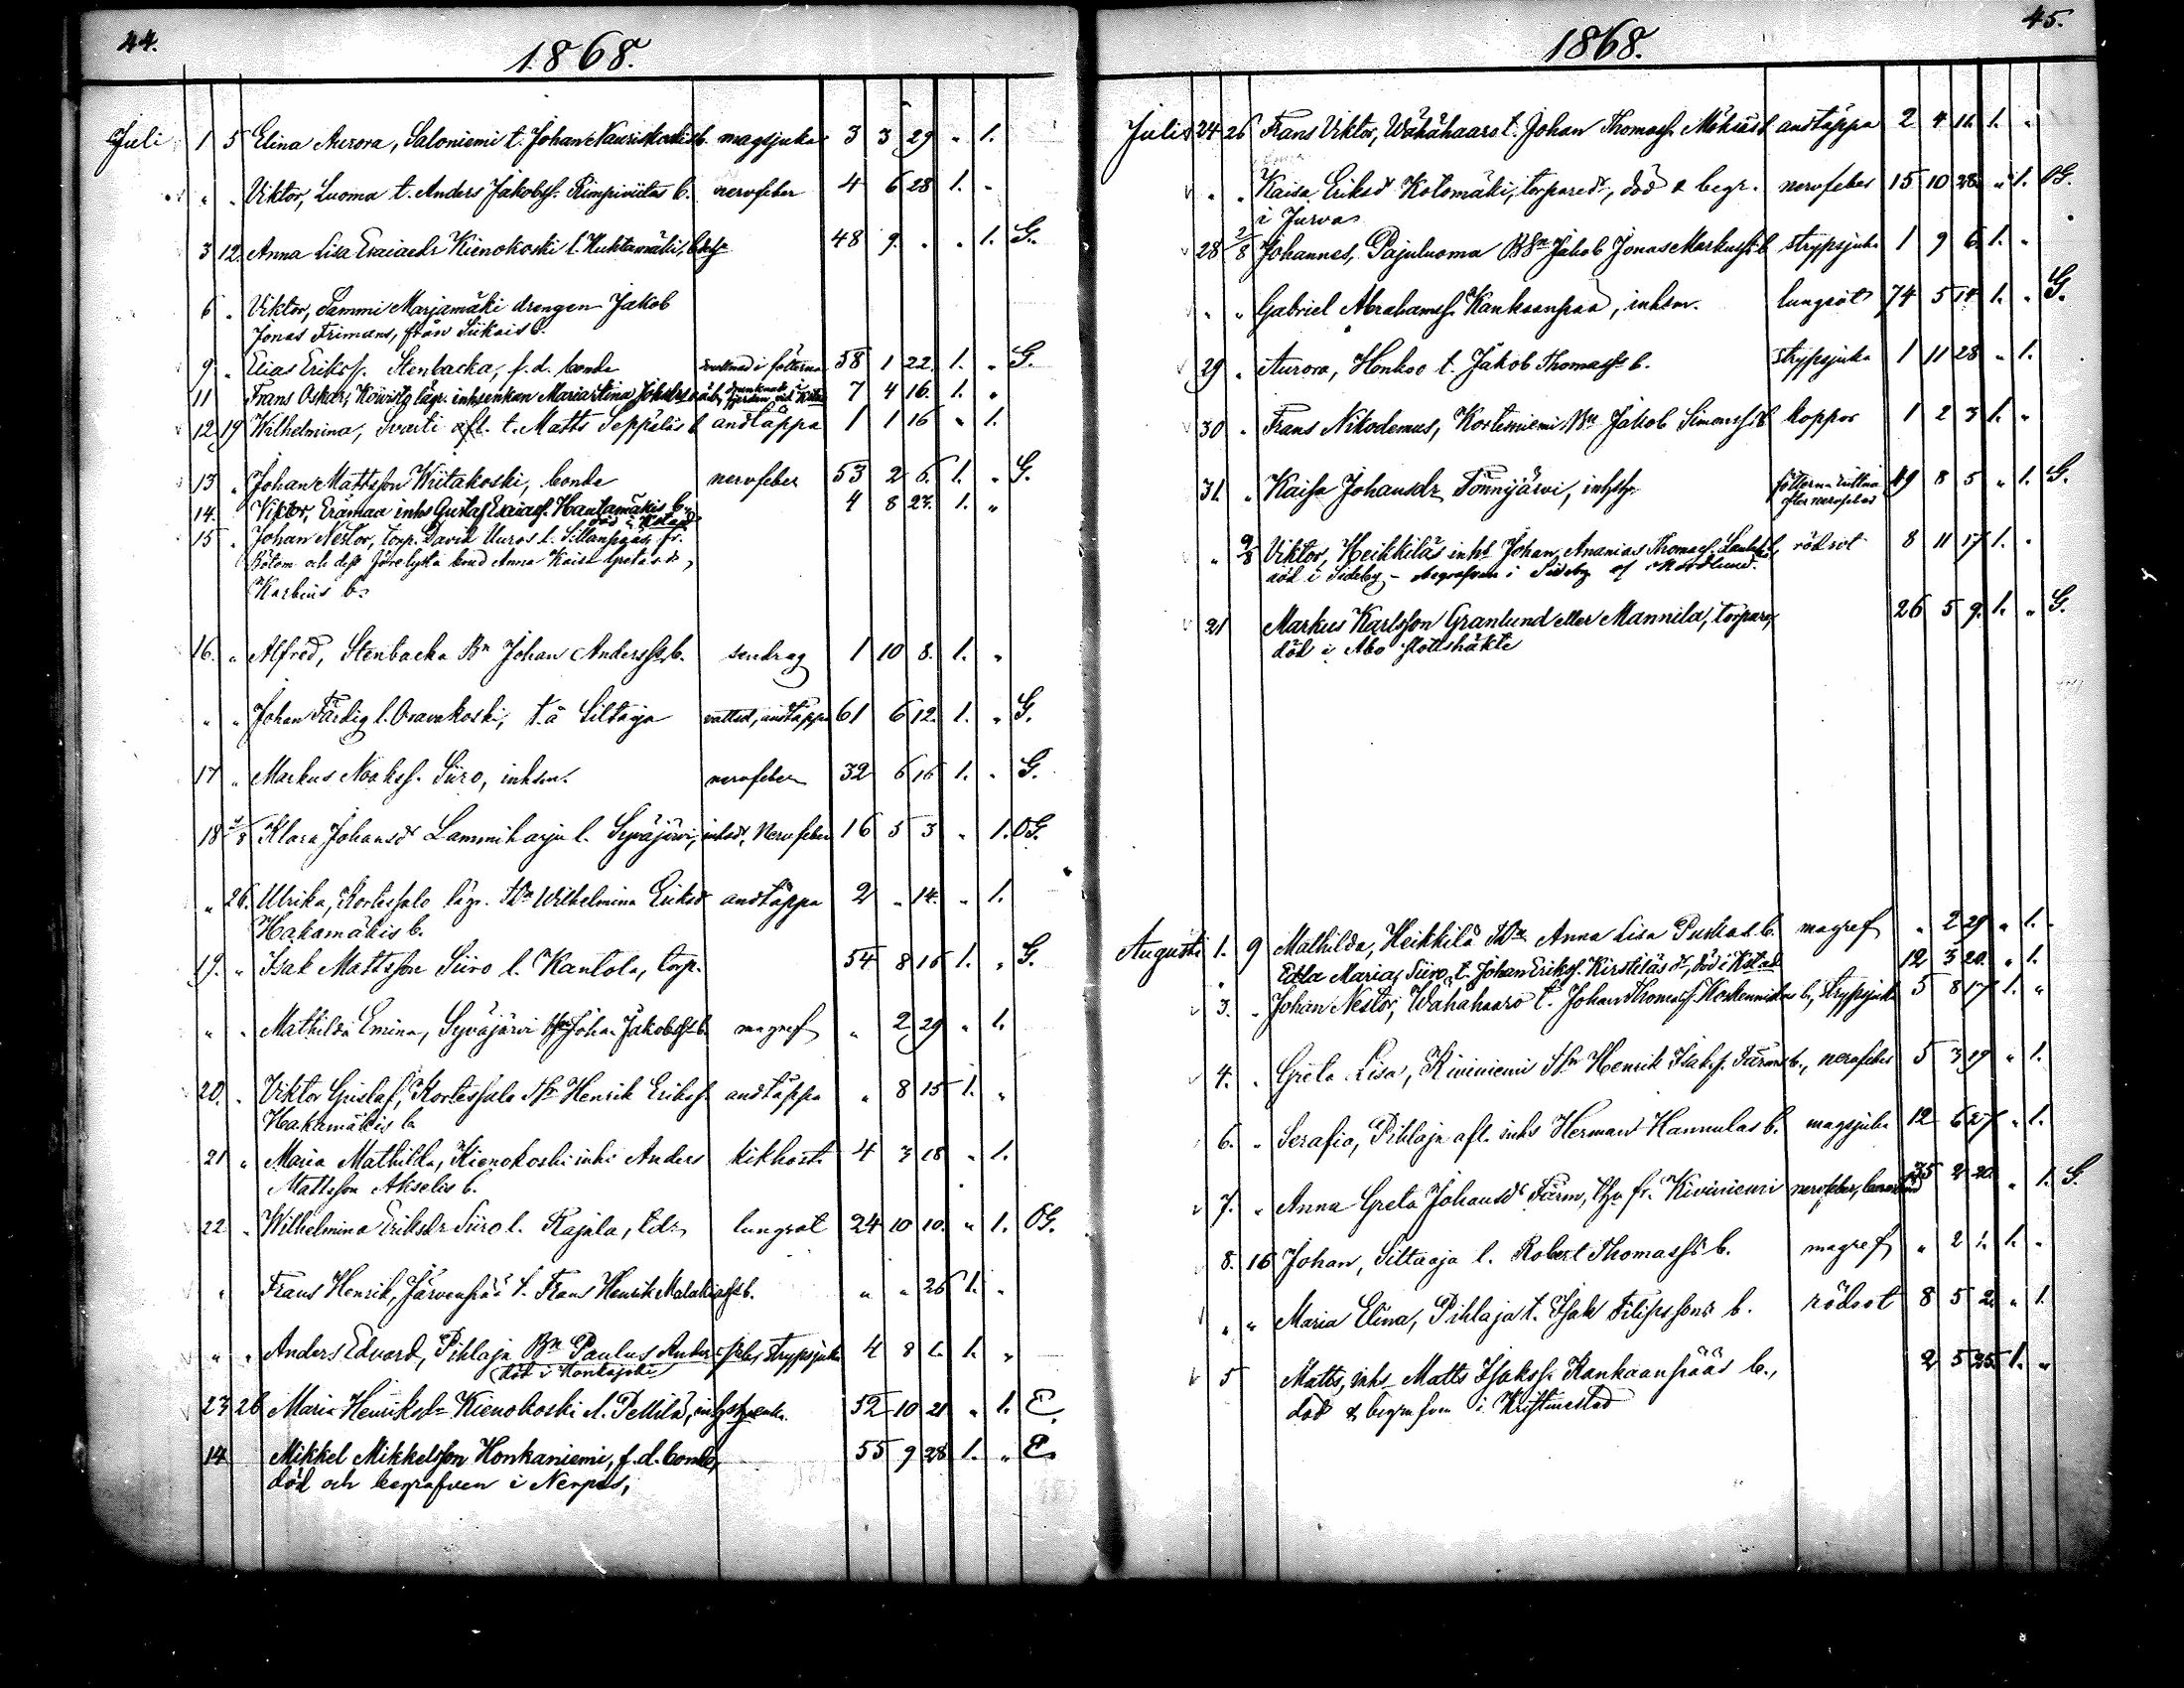 44.
1868.
Juli 1 5 Elina Aurora, Saloniemi t. Johan Nauriskoskis b. magsjuka 3 3 29 " 1.
" " Viktor, Luoma t. Anders Jakobss. Rimpiviitas b. nervfeber 4 6 28 1. "
3 12. Anna Lisa Esaiaedr Kienokoski l. Huhtamäki, 48 9. " " 1. G.
6 " Viktor, Lammi Marjamäki drengen Jakob
Jonas Frimans, från Siikais b.
9 " Elias Erikss. Stenbacka, f.d. bonde i fötterna 58 1 22. 1. " G.
11 Frans Oskar, Koivisto lägr. inhs enkan Maria Stina 7 4 16. 1. "
12. 19 Wilhelmina, Svarti afl. t. Matts Seppeläs b andtäppa 1 1 16 " 1.
13 " Johan Mattsson Wiitakoski, bonde nervfeber 53 2 6. 1. " G.
14. Viktor, Erämaa inhs Gustaf Esaiass. Hautamäkis b. 4 8 27. 1. "
död i Kstad
15 " Johan Nestor, torp. David Uuros l. Sillanpääs, fr.
Bötom och dess förelyfta brud Anna Kaisa Gretasdr,
Karhus b.
16. " Alfred, Stenbacka Bn Johan Anderss b. sendrag 1 10 8. 1. "
" " Johan Färdig l. Oravakoski, t. å Siltaoja vattsd, andtäppa 61 6 12. 1. " G.
17 " Markus Noakss. Siiro, inhsm. nervfeber 32 6 16 1. " G.
18 Klara Johansdr Lammiharju l. Syväjärvi, inhsdr, Nervfeber 16 5 3 " 1. OG.
" 26. Ulrika, Kortessalo lägr. Wilhelmina Eriksdr andtäppa 2 " 14. " 1.
Hakamäkis b.
19. " Isak Mattsson Siiro l. Kantola, torp. 54 8 16 1. " G.
" " Mathilda Emina, Syväjärvi Johan Jakobss b. magref " 2 29 " 1.
20. " Viktor Gustaf, Kortessalo Henrik Erikss. andtäppa " 8 15 1. "
Hakamäkis b.
21 " Maria Mathilda, Kienokoski inhs Anders kikhosta 4 3 18 " 1.
Mattsson Akselis b.
22 " Wilhelmina Eriksdr Siiro l. Rajala, tdr. lungsot 24 10 10. " 1. OG.
" Frans Henrik, Järvenpää t. Frans Henrik Malakiass b. " " 26 1. "
" " Anders Edvard, Pihlaja Bn Paulus Anderss b, strypsjuka 4 8 1. 1. "
död i
23 26 Maria Henriksdr Kienokoski l. Pellilä, 52 10 21 " 1. E.
14 Mikkel Mikkelsson Honkaniemi, f.d. bonde, 55 9 28 1. " E.
död och begrafven i Nerpes,
45.
1868.
Juli 24 26 Frans Viktor, Wähähaaro t. Johan Thomass. b andtäppa 2 4 11. 1. "
" " Kaisa Eriksdr Kotomäki, torparedr, död & begr. nervfeber 15 10 28. " 1. OG.
i Jurva
28 2/8 Johannes, Pajuluoma Bn Jakob Jonas Markuss b strypsjuka 1 9 6. 1. "
" " Gabriel Abrahamss. Kankaanpää, inhsm. lungsot 74 5 14 1. " G.
29 " Aurora, Honkoo t. Jakob Thomass b. strypsjuka 1 11 28 " 1.
30 " Frans Nikodemus, Kortesniemi Bn Jakob Simonss b koppor 1 2 3 1. "
31. " Kaisa Johansdr Tönnijärvi, inhshu fötterna
efter nervfeber 49 8 5 " 1. G.
" 9/8 Viktor, Heikkiläs inhs Johan Ananias Thomass. rödsot 8 11 17 1. "
död i Sideby – begrafven i Sideby af Nordlund.
21 Markus Karlsson Granlund eller Mannila, torpare, 26 5 9. 1. " G.
död i Åbo slottshäkte
Augusti 1. 9 Mathilda, Heikkilä Anna Lisa Puskas b. magref " 2 29 " 1. "
" Edla Maria, Siiro t. Johan Erikss. Kirstiläs dr, död i Kstad 12 3 20. " 1.
3. " Johan Nestor, Wähähaaro t. Johan Thomass. Koskenniskas b., strypsjuka 5 8 17 1. "
4. " Greta Lisa, Kiviniemi Henrik Isakss. Färms b., nervfeber 5 3 19 " 1.
6. " Serafia, Pihlaja afl. inhs Herman Hannulas b. magsjuka 12 6 27 " 1.
7. " Anna Greta Johansdr Färm, fr. Kiviniemi nervfeber, barnsbörd 35 2 20. " 1. G.
8. 16 Johan, Siltaoja l. Robert Thomass b. magref " 2 1. 1. "
" " Maria Elina, Pihlaja t. Isak Filipssons b. rödsot 8 5 2. " 1.
5 Matts, inhs Matts Isakss. Kankaanpääs b., 2 5 25. 1. "
död & begrafven i Kristinestad